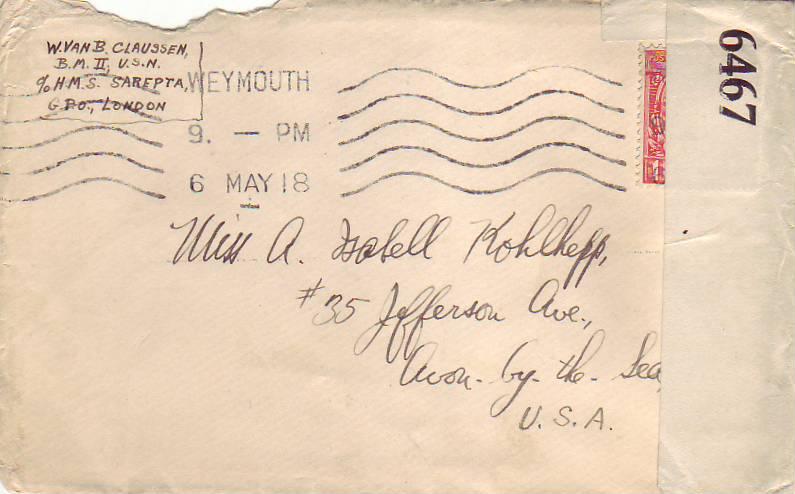 W. VAN B. CLAUSSEN,
B.M. II, U.S.N.
c/o H.M.S. SAREPTA,
G.P.O., LONDON
WEYMOUTH
9. — PM
6 MAY 18
6467
Miss A. Isabell Kohlhepp,
#35 Jefferson Ave.,
Avon-by-the-Sea,
U.S.A.